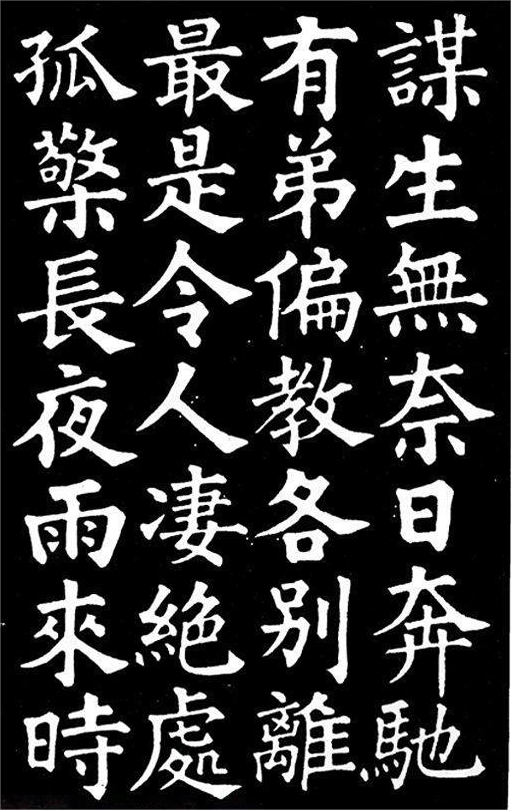 謀生無奈日奔馳
有弟偏教各别離
最是令人凄絶處
孤檠長夜雨來時